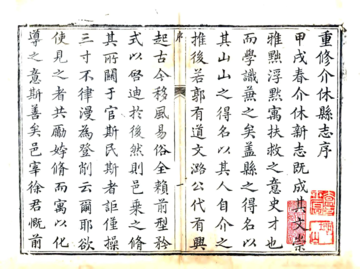 重修介休縣志序
甲戌春介休新志既成其文崇
雅黜浮點寓扶敎之意史才也
而學識兼之矣蓋縣之得名以
其山山之得名以其人自介之
推後若郭有道文潞公代有興
起古今移風易俗全賴前型矜
式以啓迪於後然則邑乘之脩
其所關于官斯民斯者詎僅操
三寸不律漫為登削云爾耶欲
使見之者共勵姱脩而寓以化
導之意斯善矣邑宰徐君慨前